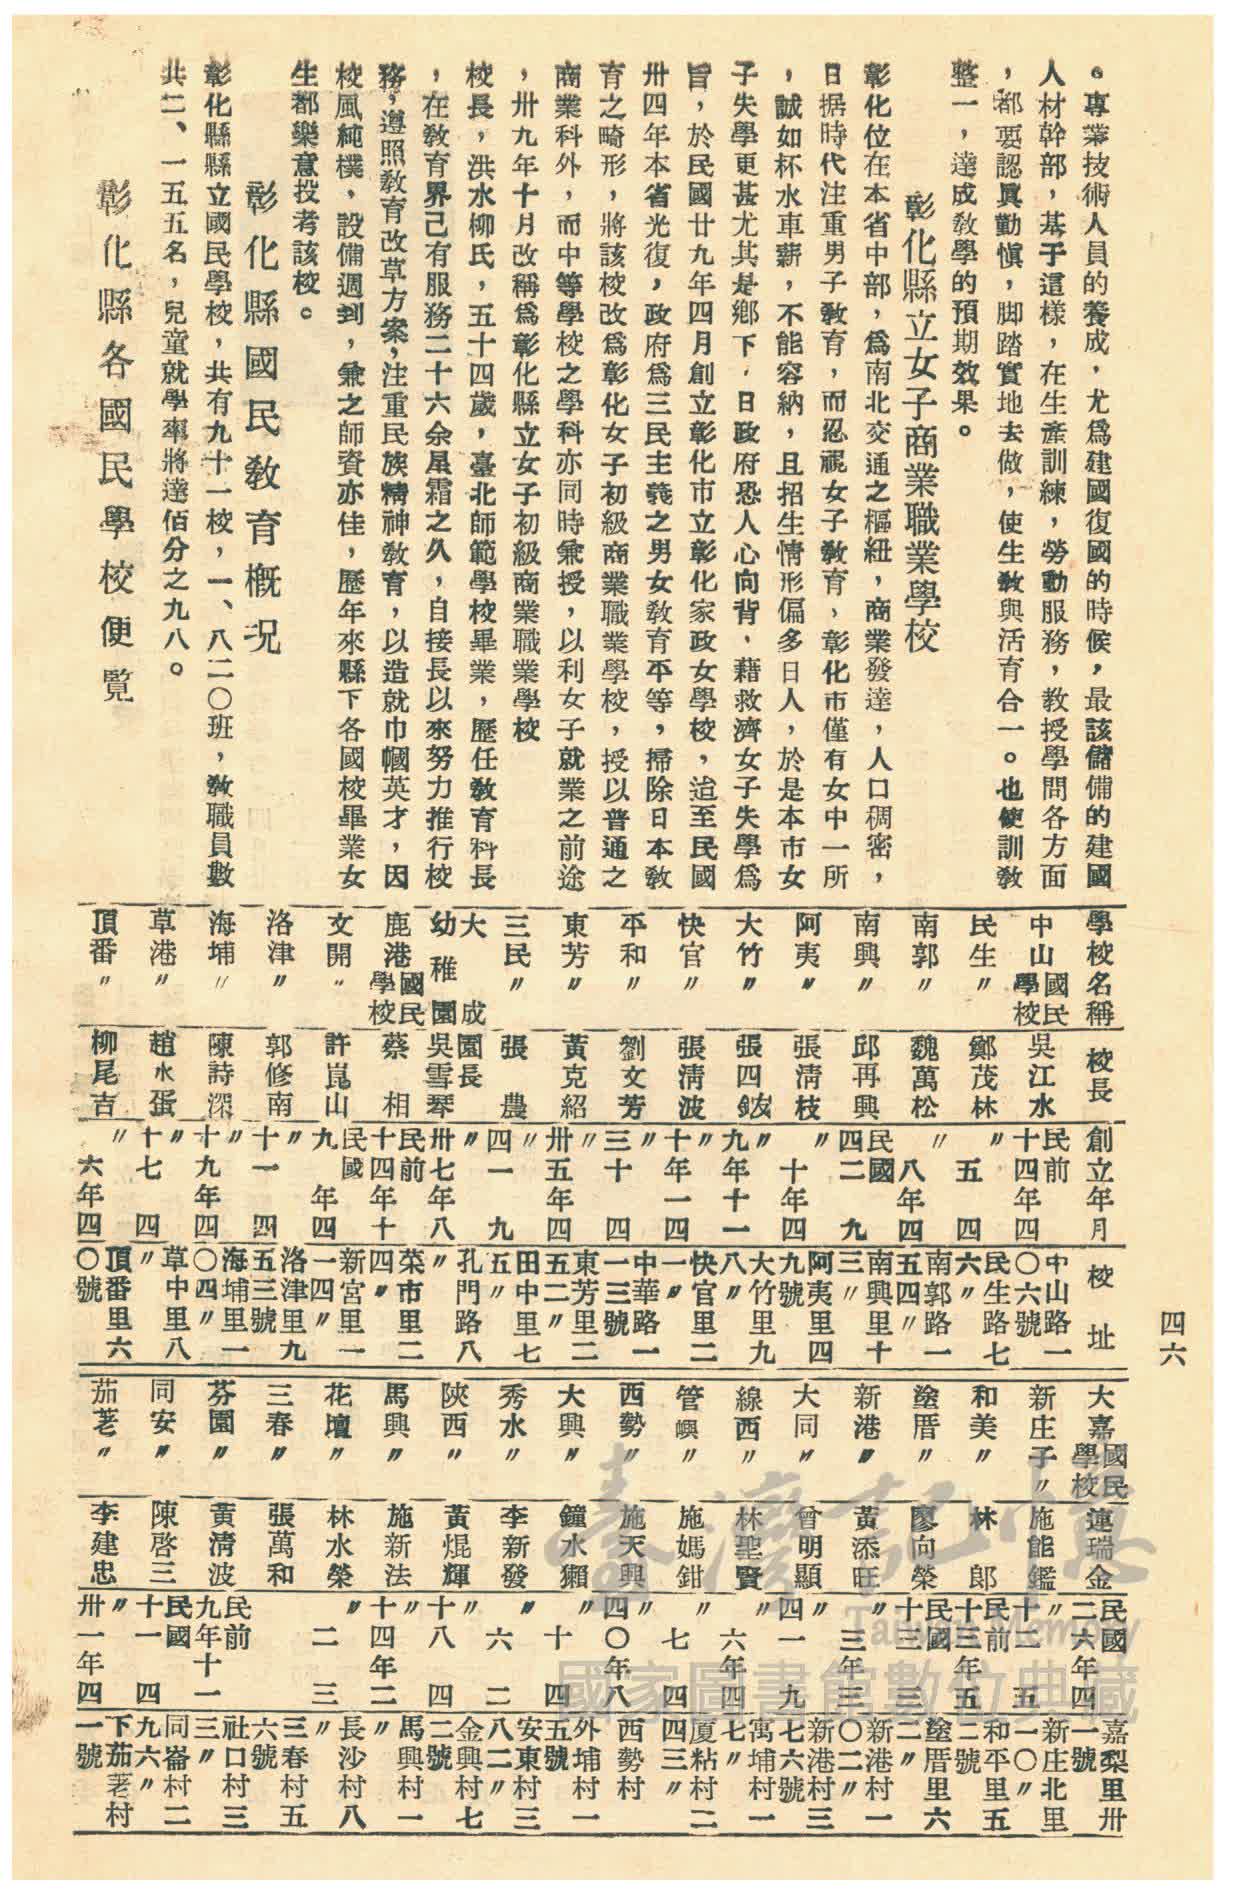 。專業技術人員的養成，尤爲建國復國的時候，最該儲備的建國
人材幹部，基于這樣，在生產訓練，勞動服務，教授學問各方面
，都要認眞勤愼，脚踏實地去做，使生教與活育合一。也使訓敎
整一，達成敎學的預期效果。
彰化縣立女子商業職業學校
彰化位在本省中部，爲南北交通之樞紐，商業發達，人口稠密，
日据時代注重男子敎育，而忍視女子敎育，彰化市僅有女中一所
，誠如杯水車薪，不能容納，且招生情形偏多日人，於是本市女
子失學更甚尤其是鄉下，日政府恐人心向背，藉救濟女子失學爲
旨，於民國廿九年四月創立彰化市立彰化家政女學校，迨至民國
卅四年本省光復，政府爲三民主義之男女敎育平等，掃除日本敎
育之畸形，將該校改爲彰化女子初級商業職業學校，授以普通之
商業科外，而中等學校之學科亦同時兼授，以利女子就業之前途
，卅九年十月改稱爲彰化縣立女子初級商業職業學校
校長，洪水柳氏，五十四歲，臺北師範學校畢業，歷任敎育科長
，在敎育界己有服務二十六余星霜之久，自接長以來努力推行校
務，遵照敎育改草方案，注重民族精神敎育，以造就巾幗英才，因
校風純樸，設備週到，兼之師資亦佳，歷年來縣下各國校畢業女
生都樂意投考該校。
彰化縣國民敎育槪況
彰化縣縣立國民學校，共有九十一校，一、八二〇班，敎職員數
共二、一五五名，兒童就學率將達佰分之九八。
彰化縣各國民學校便覽
學校名稱 校長 創立年月 校址
中山國民學校 吳江水 民前十四年四 中山路一〇六號
民生〃 鄭茂林 〃五 四 民生路七六〃
南郭〃 魏萬松 〃八年四 南郭路一五四〃
南興〃 邱再興 民國四二 九 南興里十三〃
阿夷〃 張清枝 〃十年四 阿夷里四九號
大竹〃 張四𨥮 〃九年十一 大竹里九八〃
快官〃 張清波 〃十年一四 快官里二一〃
平和〃 劉文芳 〃三十 四 中華路一一三號
東芳〃 黃克紹 〃卅五年四 東芳里二五二〃
三民〃 張農 〃四一 九 田中里七五〃
大成幼稚園 園長吳雪琴 〃卅七年八 孔門路八〃
鹿港國民學校 蔡相 民前十四年十 菜市里二四〃
文開〃 許崑山 民國九年四 新宮里一一四〃
洛津〃 郭修南 〃十一 四 洛津里九五三號
海埔〃 陳詩深 〃十九年四 海埔里一〇四〃
草港〃 趙水蛋 〃十七 四 草中里八〃
頂番〃 柳尾吉 〃六年四 頂番里六〇號
大嘉國民學校 連瑞金 民國二六年四 嘉梨里卅一號
新庄子〃 施能鑑 〃十二 五 新庄北里一一〇〃
和美〃 林郎 民前十三年五 和平里五二號
塗厝〃 廖向榮 民國十三 三 塗厝里六二〃
新港〃 黃添旺 〃三年三 新港村一〇二〃
大同〃 曾明顯 〃四一 九 新港村三七六號
線西〃 林聖賢 〃六年四 寓埔村一七〃
管嶼〃 施媽鉗 〃七 四 厦粘村二四三〃
西勢〃 施天興 〃四〇年八 西勢村
大興〃 鐘水獺 〃十 四 外埔村一五號
秀水〃 李新發 〃六 二 安東村三八二〃
陝西〃 黃焜輝 〃十八 四 金興村七二號
馬興〃 施新法 〃十四年二 馬興村一〃
花壇〃 林水榮 〃二 三 長沙村八〃
三春〃 張萬和 三春村五六號
芬園〃 黃清波 民前九年十一 社口村三三〃
同安〃 陳啓三 民國十一 四 同崙村二九六〃
茄荖〃 李建忠 〃卅一年四 下茄荖村一號
四六
臺灣記憶
Taiwan Memory
國家圖書館數位典藏